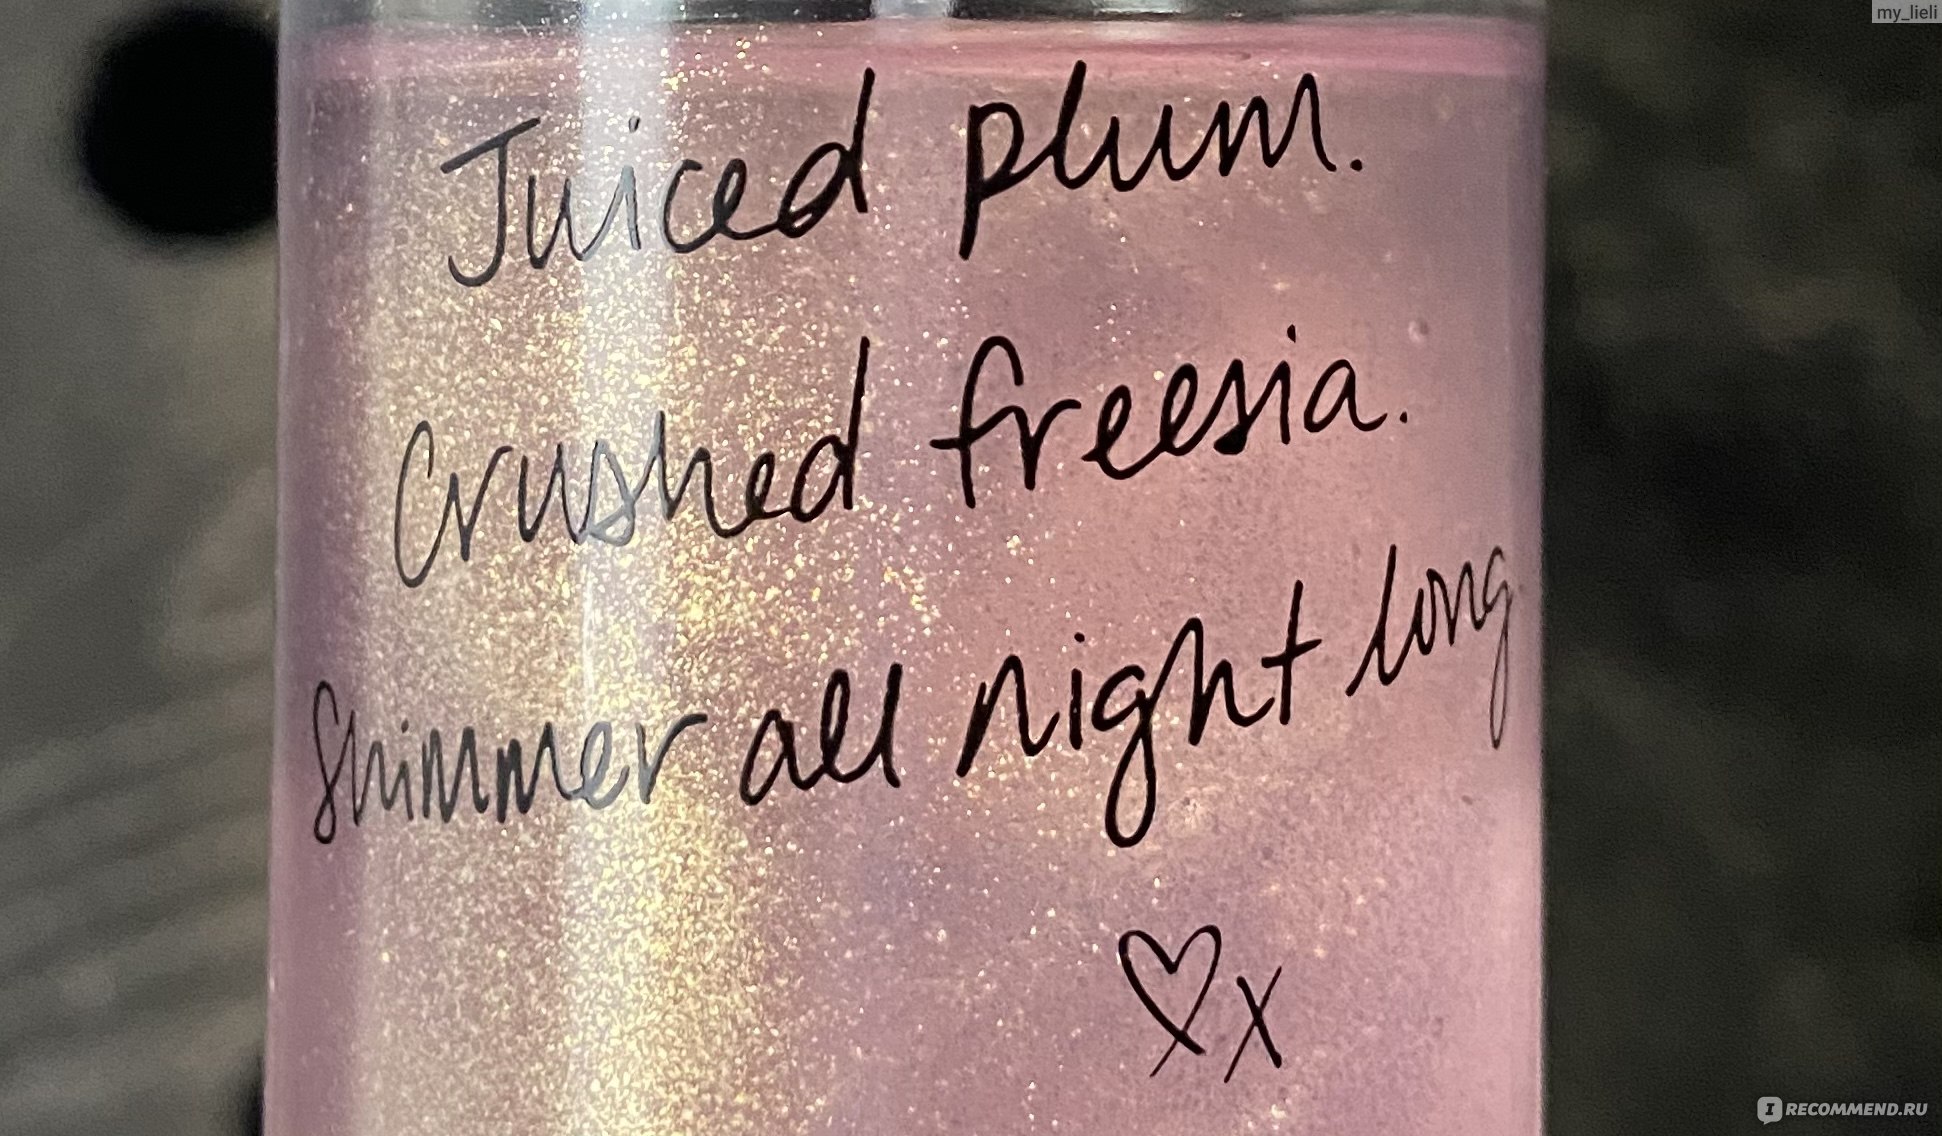 my_lieli
Juiced plum.
Crushed freesia.
Shimmer all night long.
♡x
I RECOMMEND.RU